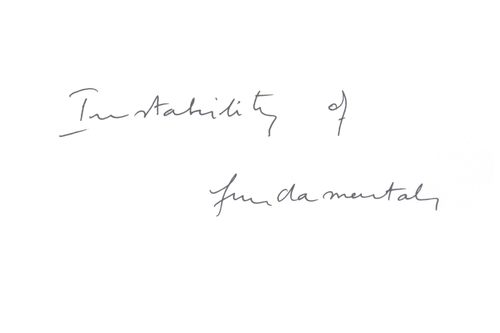 Instability of
fundamentals